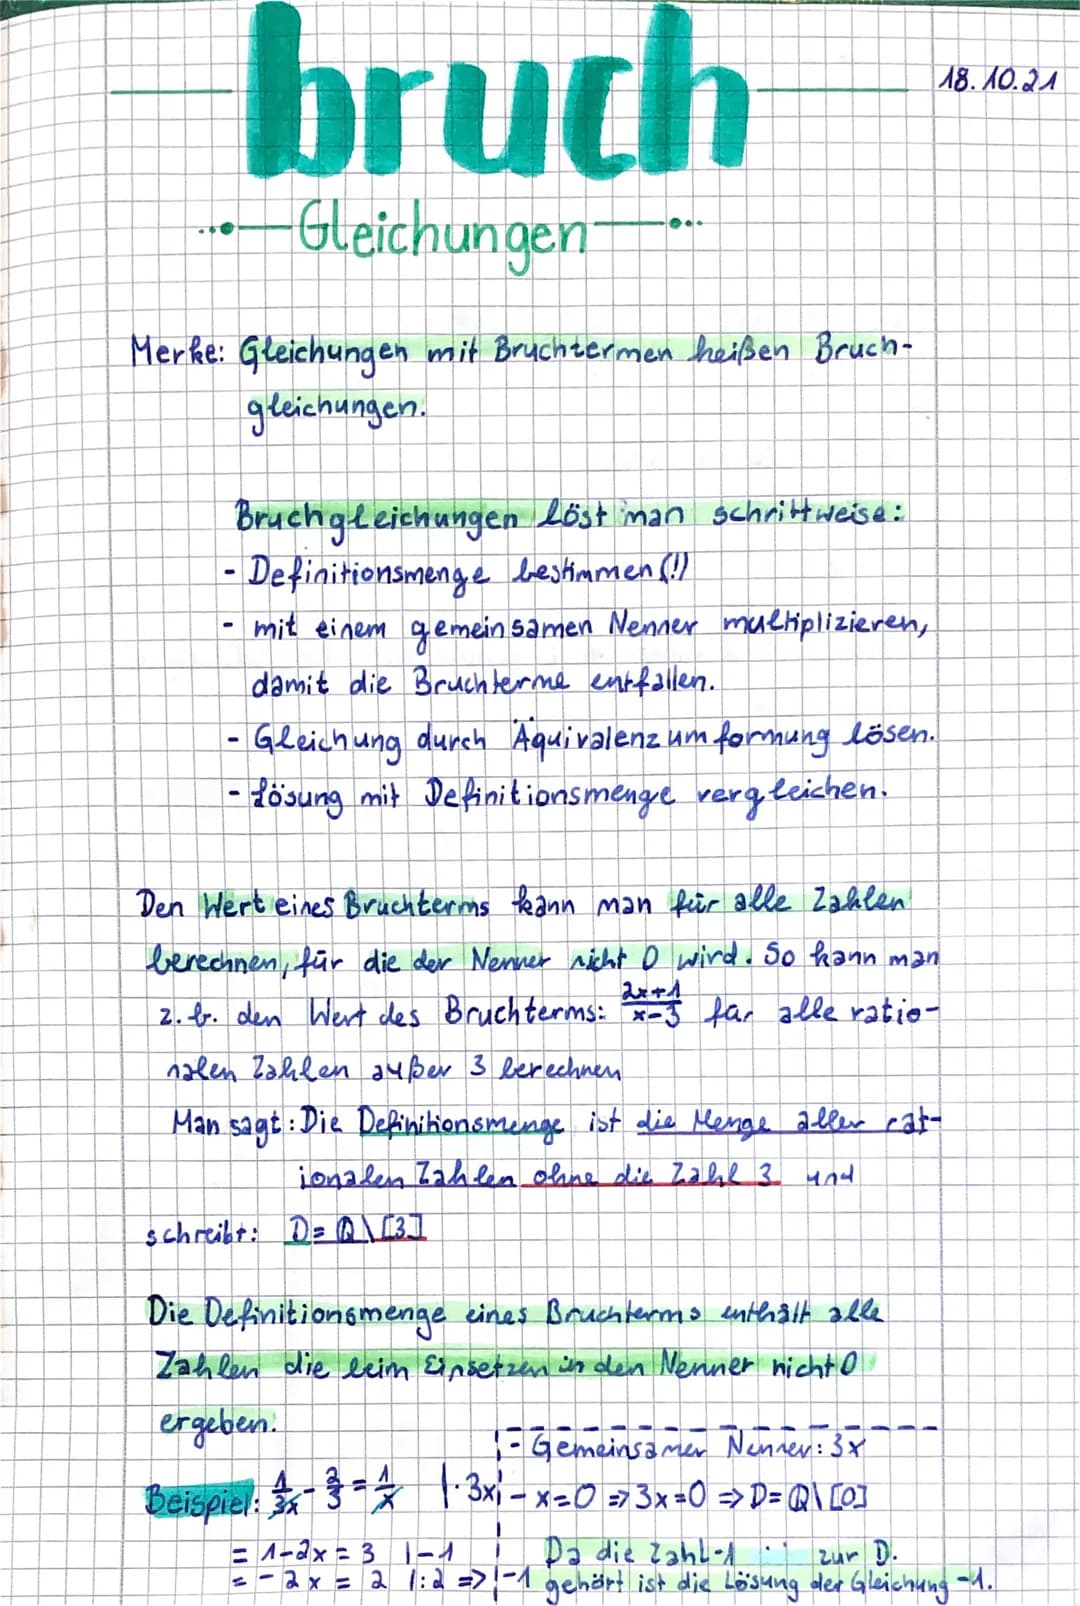 bruch
18.10.21
Gleichungen
Merke: Gleichungen mit Bruchtermen heißen Bruch-
gleichungen.
Bruchgleichungen löst man schrittweise:
- Definitionsmenge bestimmen (!)
- mit einem gemeinsamen Nenner multiplizieren,
damit die Bruchterme entfallen.
- Gleichung durch Äquivalenzumformung lösen.
- Lösung mit Definitionsmenge vergleichen.
Den Wert eines Bruchterms kann man für alle Zahlen
berechnen, für die der Nenner nicht 0 wird. So kann man
z.b. den Wert des Bruchterms: (2x+1)/(x-3) für alle ratio-
nalen Zahlen außer 3 berechnen
Man sagt: Die Definitionsmenge ist die Menge aller rat-
ionalen Zahlen ohne die Zahl 3 und
schreibt: D=Q\[3]
Die Definitionsmenge eines Bruchterms enthält alle
Zahlen die beim Einsetzen in den Nenner nicht 0
ergeben.
- Gemeinsamer Nenner: 3x
Beispiel: 1/3x - 2/3 = 1/x |·3x - x=0 => 3x=0 => D=Q\[0]
= 1-2x = 3 |-1 Da die Zahl -1 zur D.
= -2x = 2 |:2 => -1 gehört ist die Lösung der Gleichung -1.